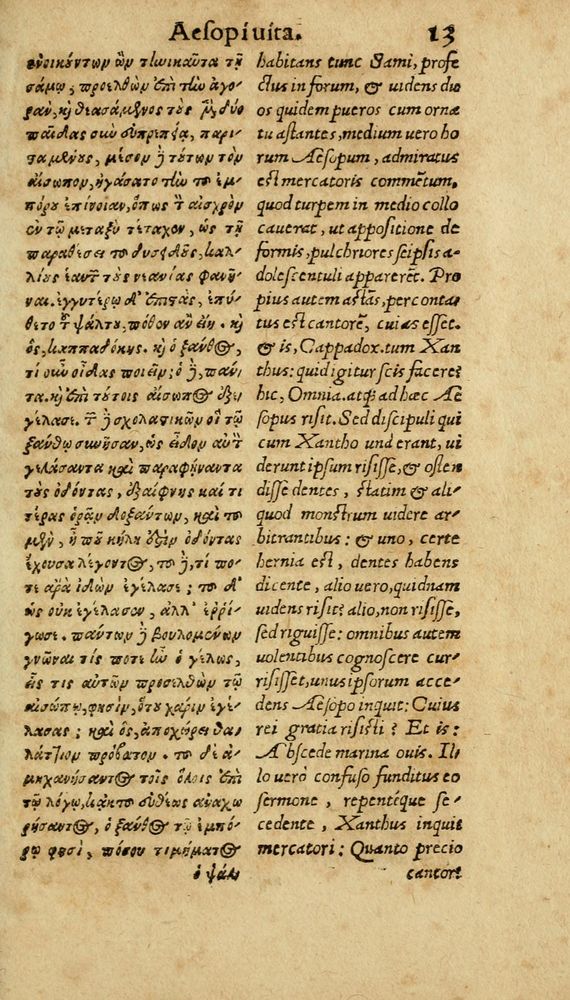 Aesopi uita. 13
ἐνοικούντων ὢν τηνικαῦτα τῇ
σάμῳ, προελθὼν ἐπὶ τὴν ἀγο-
ρὰν, κỳ θεασάμενος τοὺς μὲν δύο
παῖδας σὺν εὐπρεπείᾳ, παρι-
σταμένους, μέσον δὲ τούτων τὸν
αἴσωπον, ἠγάσατο τὴν τοῦ ἐμ-
πόρου ἐπίνοιαν, ὅπως τὸν αἰσχρὸν
ἐν τῷ μεταξὺ τέταχεν, ὡς τῇ
παραθέσει τοῦ δυσειδοῦς, καλ-
λίους ἑαυτῶν τοὺς νεανίας φανῆ-
ναι. ἐγγυτέρω δ' ἐπιστὰς, ἐπύ-
θετο τοῦ ψάλτου, πόθεν ἂν εἴη. καὶ
ὃς, καππαδόκης. καὶ ὁ ξάνθος,
τί οὖν οἶδας ποιεῖν; ὁ δὲ, πάν-
τα. καὶ ἐπὶ τούτοις αἴσωπος ἐξε-
γέλασε. τῶν δὲ σχολαστικῶν οἳ τῷ
ξάνθῳ συνῆσαν, ὡς εἶδον αὐτὸν
γελάσαντα καὶ παραφήναντα
τοὺς ὀδόντας, ἐξαίφνης καί τι
τέρας ὁρᾷν δοξάντων, καὶ τοῦ
μὲν, ἦ που κήλη ἐστὶν ὀδόντας
ἔχουσα λέγοντος, τοῦ δὲ, τί πο-
τε ἄρα ἰδὼν ἐγέλασε; τοῦ δ'
ὡς οὐκ ἐγέλασεν, ἀλλ' ἐρρί-
γωσε. πάντων δὲ βουλομένων
γνῶναι τίς ποτε ἦν ὁ γέλως,
εἷς τις αὐτῶν προσελθὼν τῷ
αἰσώπῳ, φησὶν, ὅτου χάριν ἐγέ-
λασας; καὶ ὃς, ἀποχώρει θα-
λάττιον πρόβατον. τοῦ δὲ ἀ-
μηχανήσαντος τοῖς ὅλοις ἐπὶ
τῷ λόγῳ, κἀκ τοῦ εὐθέως ἀναχω
ρήσαντος, ὁ ξάνθος τῷ ἐμπό-
ρῳ φησὶ, πόσου τιμήματος
ὁ ψάλ-
habitans tunc Sami, profe
ctus in forum, & uidens du
os quidem pueros cum orna
tu astantes, medium uero ho
rum Aesopum, admiratus
est mercatoris commētum,
quod turpem in medio collo
cauerat, ut appositione de
formis, pulchriores seipsis a-
dolescentuli apparerēt. Pro
pius autem astās, perconta-
tus est cantorē, cuias esset.
& is, Cappadox. tum Xan
thus: quid igitur scis facere?
hic, Omnia. atq; ad hæc Ae
sopus risit. Sed discipuli qui
cum Xantho unà erant, ui
derunt ipsum risisse, & osten
disse dentes, statim & ali-
quod monstrum uidere ar-
bitrantibus: & uno, certe
hernia est, dentes habens
dicente, alio uero, quidnam
uidens risit? alio, non risisse,
sed riguisse: omnibus autem
uolentibus cognoscere cur
risisset, unus ipsorum acce-
dens Aesopo inquit: Cuius
rei gratia risisti? Et is:
Abscede marina ouis. Il-
lo uerò confuso funditus eo
sermone, repentéque se-
cedente, Xanthus inquit
mercatori: Quanto precio
cantor?